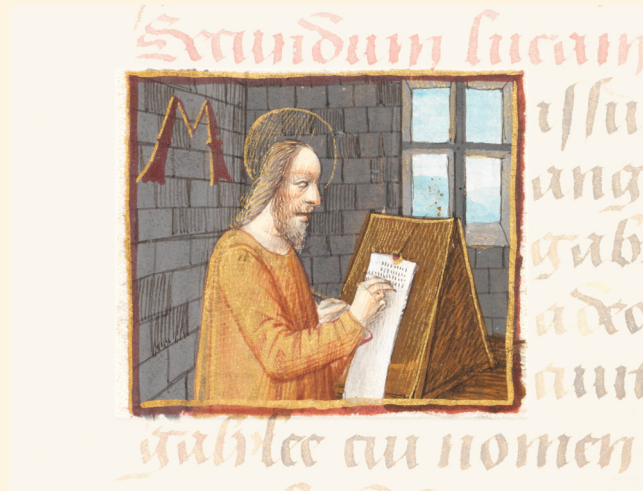 Secundum lucam
M
issu
ang
gab
a deo
auit
galilee cui nomen